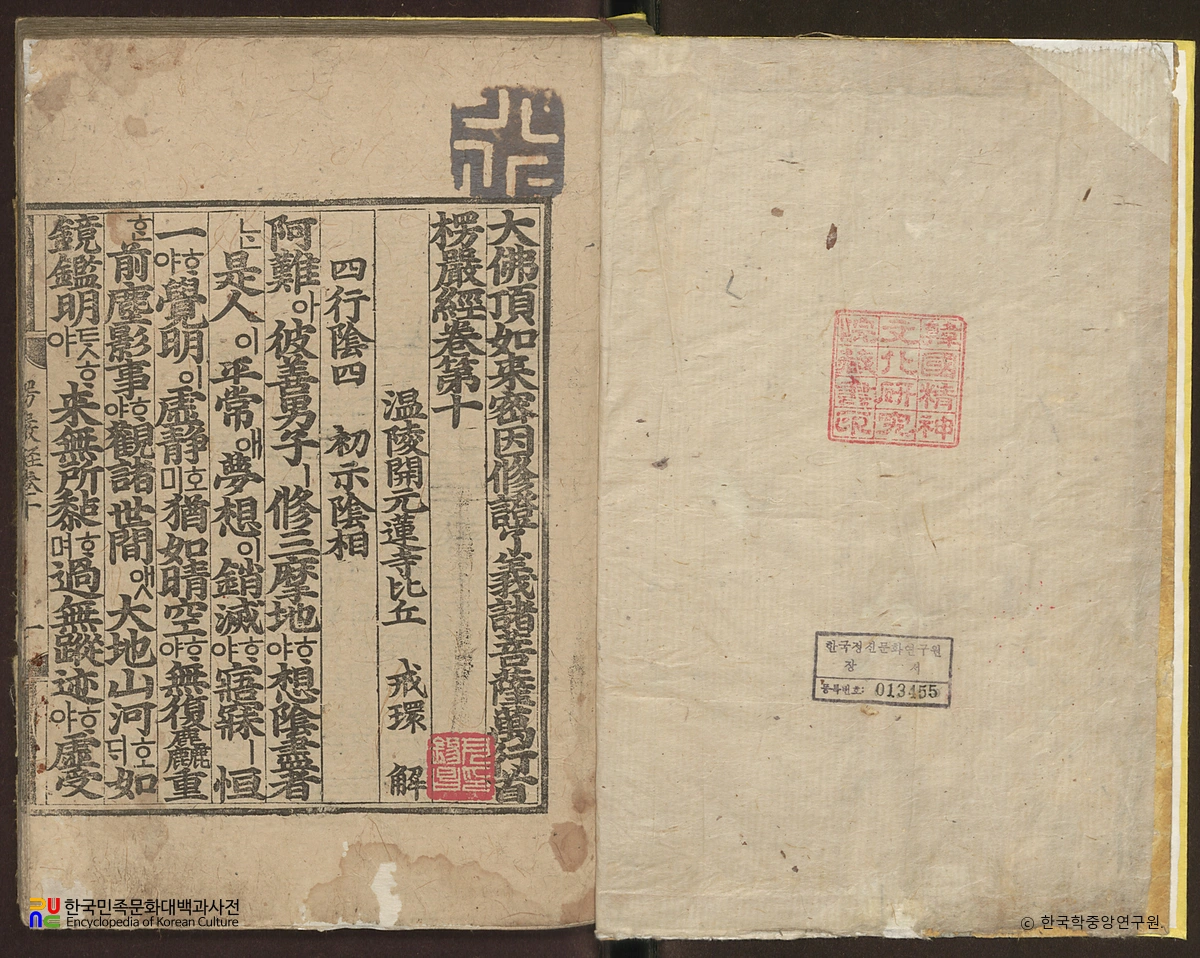 大佛頂如來密因修證了義諸菩薩萬行首
楞嚴經卷第十
温陵開元蓮寺比丘 戒環 解
四行陰四 初示陰相
阿難아彼善男子ㅣ修三摩地ᄒᆞ야想陰盡者
ᄂᆞᆫ是人이平常애夢想이銷滅ᄒᆞ야寤寐ㅣ恒
一ᄒᆞ야覺明이虛静호미猶如晴空ᄒᆞ야無復麤重
ᄒᆞᆫ前塵影事ᄒᆞ야觀諸世間앳大地山河호ᄃᆡ如
鏡鑑明ᄐᆞᆺᄒᆞ야來無所黏ᄒᆞ며過無蹤迹ᄒᆞ야虛受
韓國精神
文化硏究
院藏書印
한국정신문화연구원
장 서
등록번호: 013455
한국민족문화대백과사전
Encyclopedia of Korean Culture
ⓒ 한국학중앙연구원